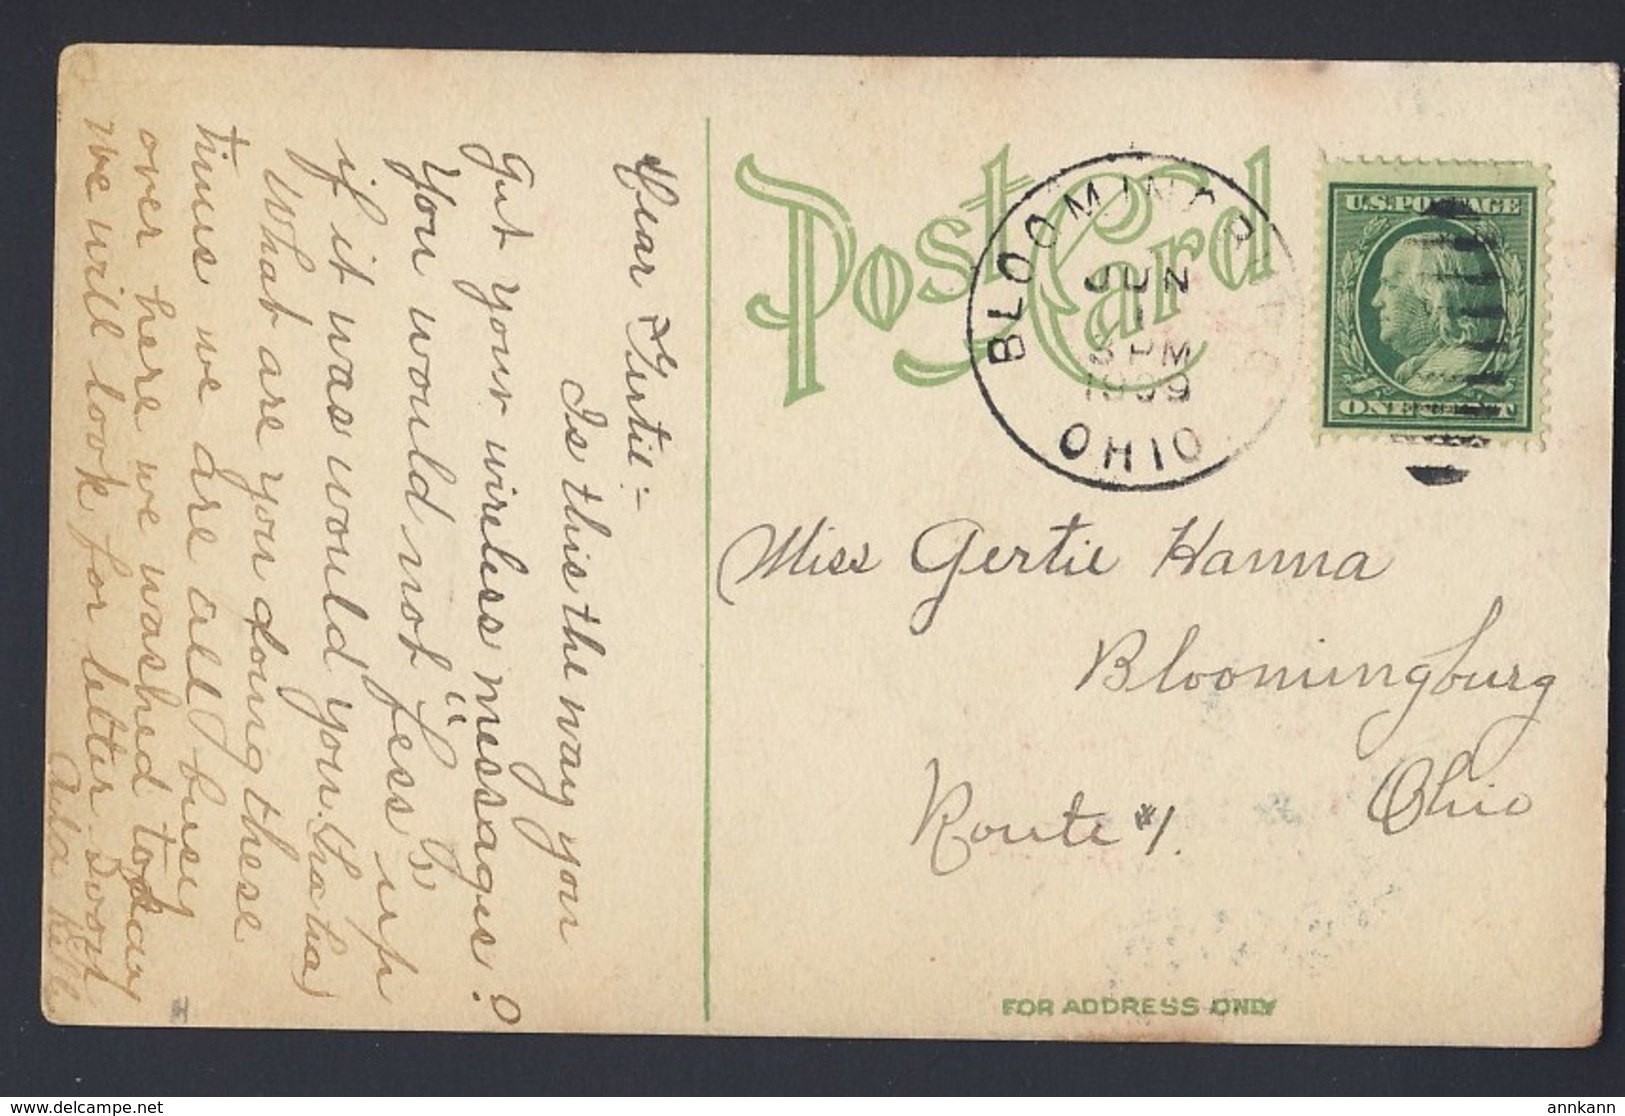 Dear Gertie:-
Is this the way you
Gut your wireless messages?
You would not 'fess up
if it was would you. (ha ha)
What are you doing these
times we are all busy
over here we washed today
we will look for letter soon
Ada
Post Card
BLOOMINGBURG
JUN
1
3 PM
1909
OHIO
U.S. POSTAGE
ONE CENT
Miss Gertie Hanna
Bloomingburg
Ohio
Route #1.
FOR ADDRESS ONLY
annkann
www.delcampe.net